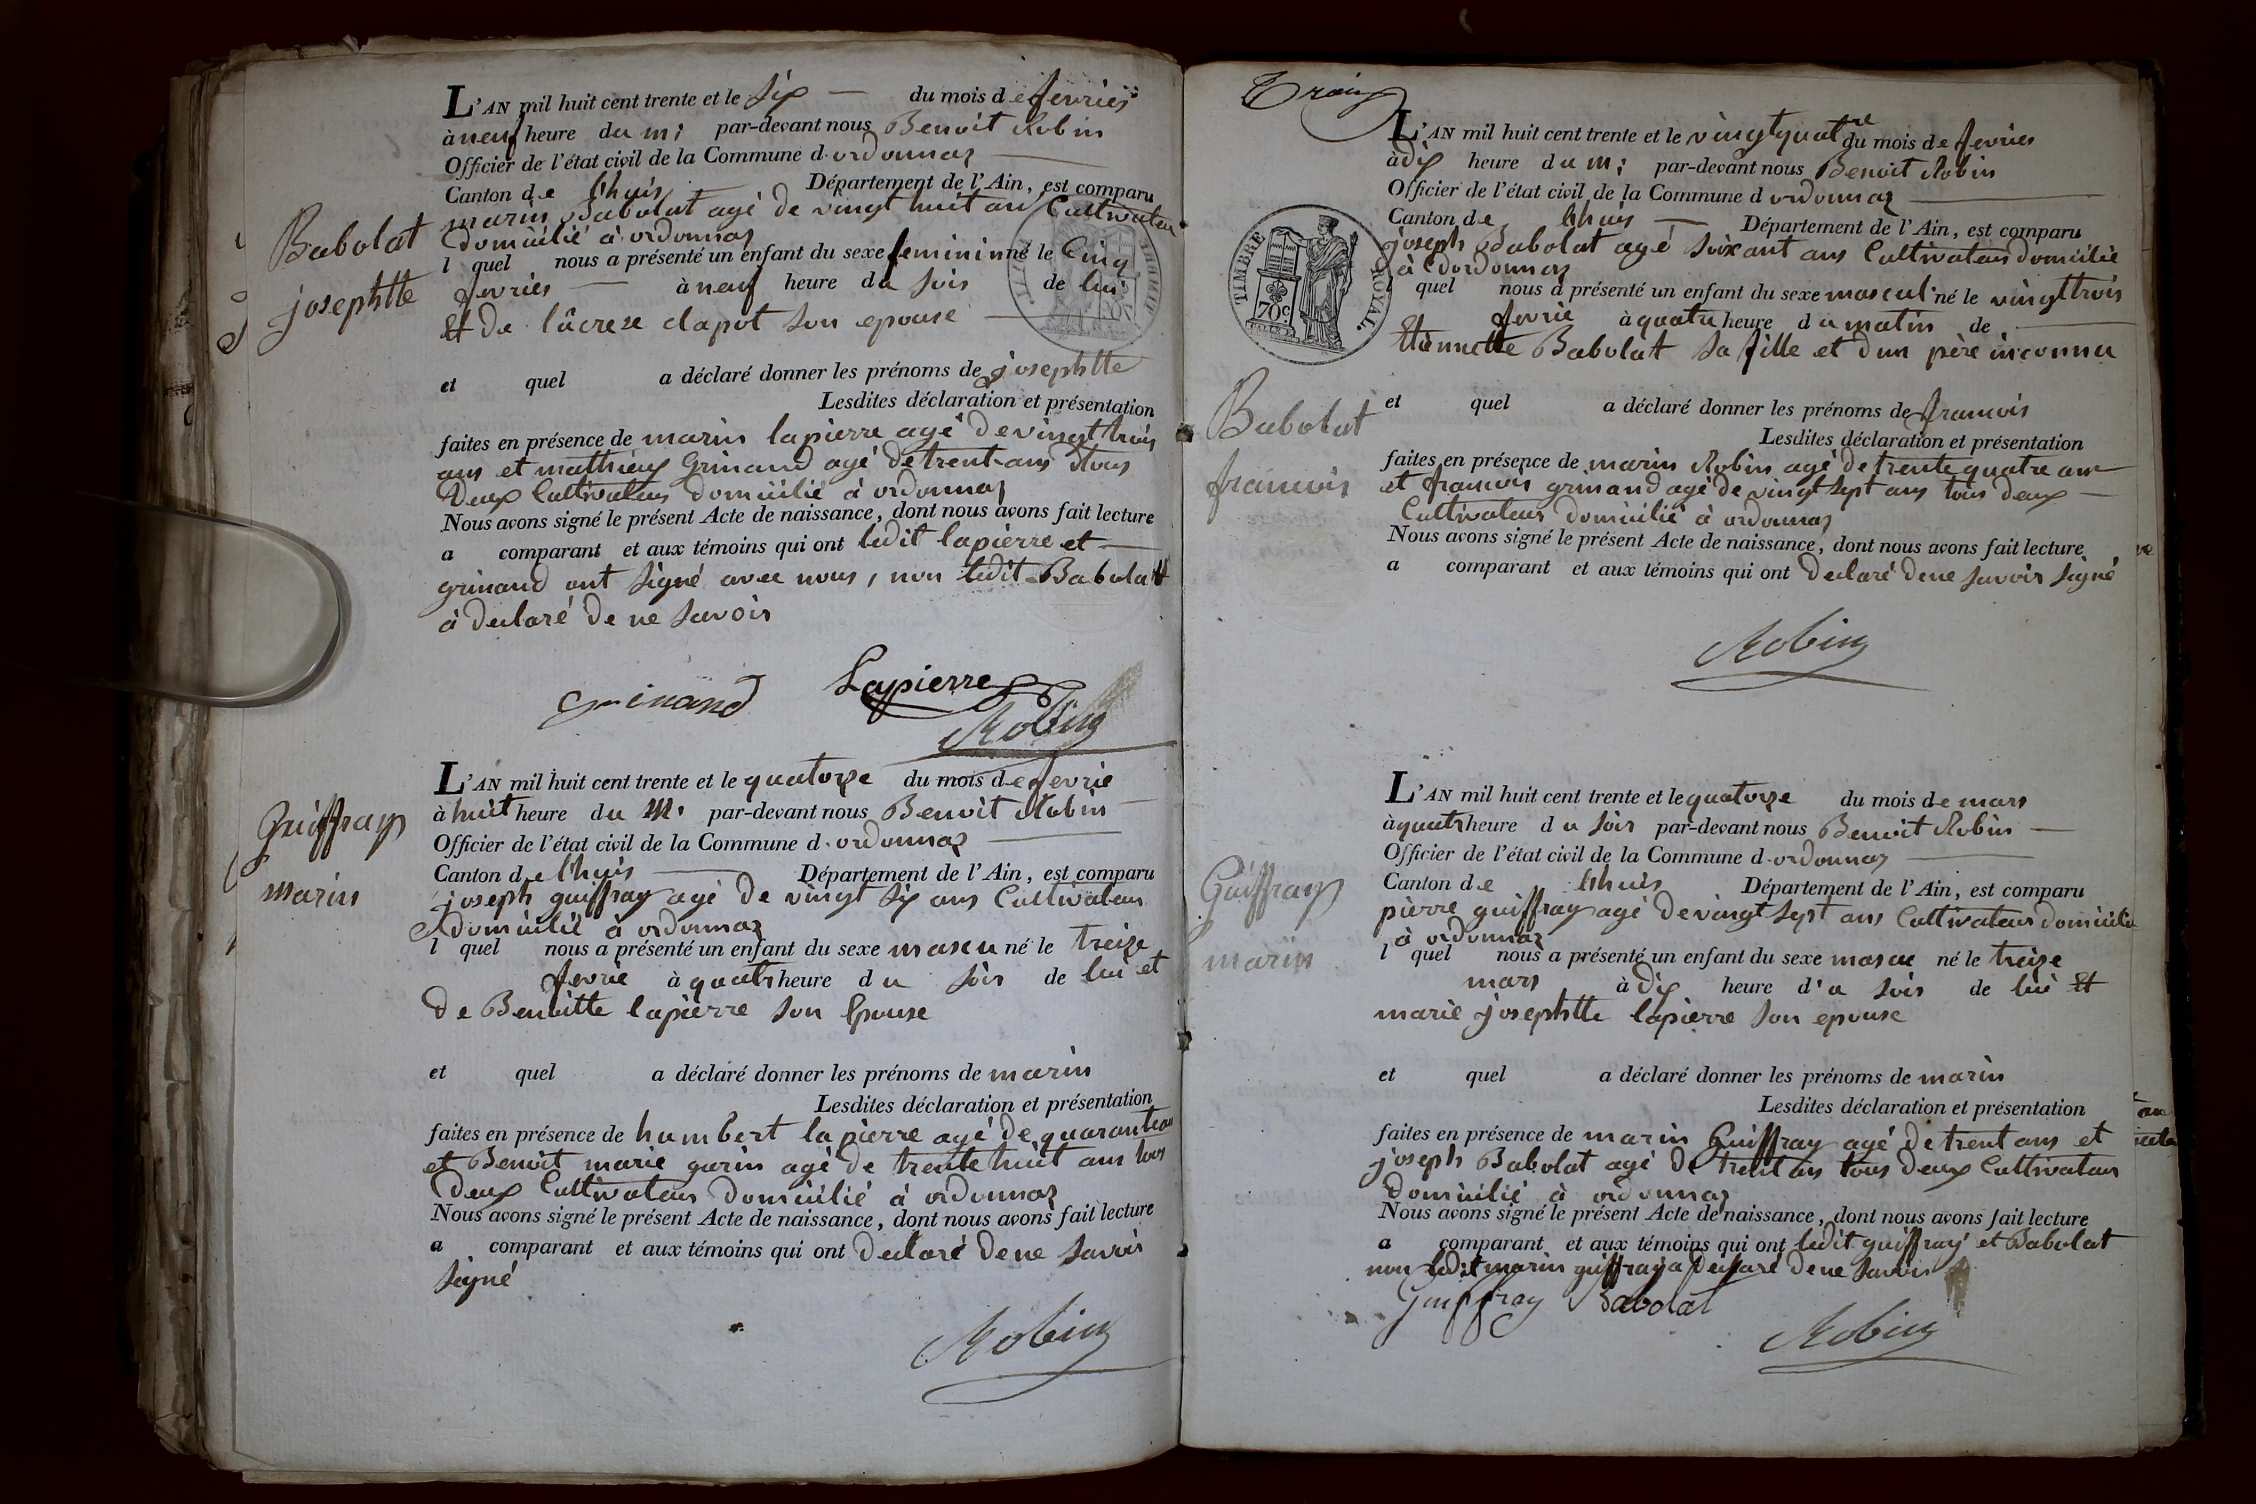 L'AN mil huit cent trente et le six du mois de fevrier
à neuf heure du m: par-devant nous Benoit Robin
Officier de l'état civil de la Commune d. ordonnaz
Canton de lhuis Département de l'Ain, est comparu
marin Babolat agé de vingt huit ans Cultivateur
domicilié à ordonnaz
Babolat
josephtte
l quel nous a présenté un enfant du sexe feminin né le Cinq
fevrier à neuf heure du soir de lui
Et de lâcrese clapot son epouse
et quel a déclaré donner les prénoms de josephtte
Lesdites déclaration et présentation
faites en présence de marin lapierre agé de vingt trois
ans et mathieu Grinand agé de trent ans tous
Deux Cultivateur domicilié à ordonnaz
Nous avons signé le présent Acte de naissance, dont nous avons fait lecture
a comparant et aux témoins qui ont ledit lapierre et
grinand ont signé avec nous, non ledit Babolatt
à declaré de ne savoir
Grinand Lapierre
Robin
L'AN mil huit cent trente et le quatorze du mois de fevrie
à huit heure du M. par-devant nous Benoit Robin
Officier de l'état civil de la Commune d. ordonnaz
Canton de lhuis Département de l'Ain, est comparu
joseph guiffray agé de vingt six ans Cultivateur
domicilié à ordonnaz
Guiffray
marin
l quel nous a présenté un enfant du sexe mascu né le treize
fevrie à quatr heure du soir de lui et
de Benoitte lapierre son Epouse
et quel a déclaré donner les prénoms de marin
Lesdites déclaration et présentation
faites en présence de humbert lapierre agé de quarant ans
et Benoit marie garin agé de trente huit ans tous
Deux Cultivateur domicilié à ordonnaz
Nous avons signé le présent Acte de naissance, dont nous avons fait lecture
a comparant et aux témoins qui ont declaré de ne savoir
signé
Robin
Trois
L'AN mil huit cent trente et le vingtquatre du mois de fevrier
à dix heure du m: par-devant nous Benoit Robin
Officier de l'état civil de la Commune d ordonnaz
Canton de lhuis Département de l'Ain, est comparu
joseph Babolat agé soixant ans Cultivateur domicilié
à dordonnaz
TIMBRE ROYAL.
70 c
quel nous a présenté un enfant du sexe mascul. né le vingttrois
fevrie à quatre heure du matin de
Etiennette Babolat sa fille et dun père inconnu
Babolat
francois
et quel a déclaré donner les prénoms de francois
Lesdites déclaration et présentation
faites en présence de marin Robin agé de trente quatre ans
et francois grinand agé de vingt sept ans tous deux
Cultivateur domicilié à ordonnaz
Nous avons signé le présent Acte de naissance, dont nous avons fait lecture
a comparant et aux témoins qui ont declaré de ne savoir signé
Robin
L'AN mil huit cent trente et le quatorze du mois de mars
à quatr heure du soir par-devant nous Benoit Robin
Officier de l'état civil de la Commune d. ordonnaz
Canton de lhuis Département de l'Ain, est comparu
pierre guiffray agé de vingt sept ans Cultivateur domicilié
à ordonnaz
Guiffray
marin
l quel nous a présenté un enfant du sexe mascu né le treize
mars à dix heure du soir de lui Et
marie josephtte lapierre son epouse
et quel a déclaré donner les prénoms de marin
Lesdites déclaration et présentation
faites en présence de marin Guiffray agé de trent ans et
joseph Babolat agé de trent ans tous deux Cultivateur
domicilié à ordonnaz
Nous avons signé le présent Acte de naissance, dont nous avons fait lecture
a comparant et aux témoins qui ont ledit guiffray et Babolat
non ledit marin guiffray a declaré de ne savoir
Guiffray Babolat
Robin